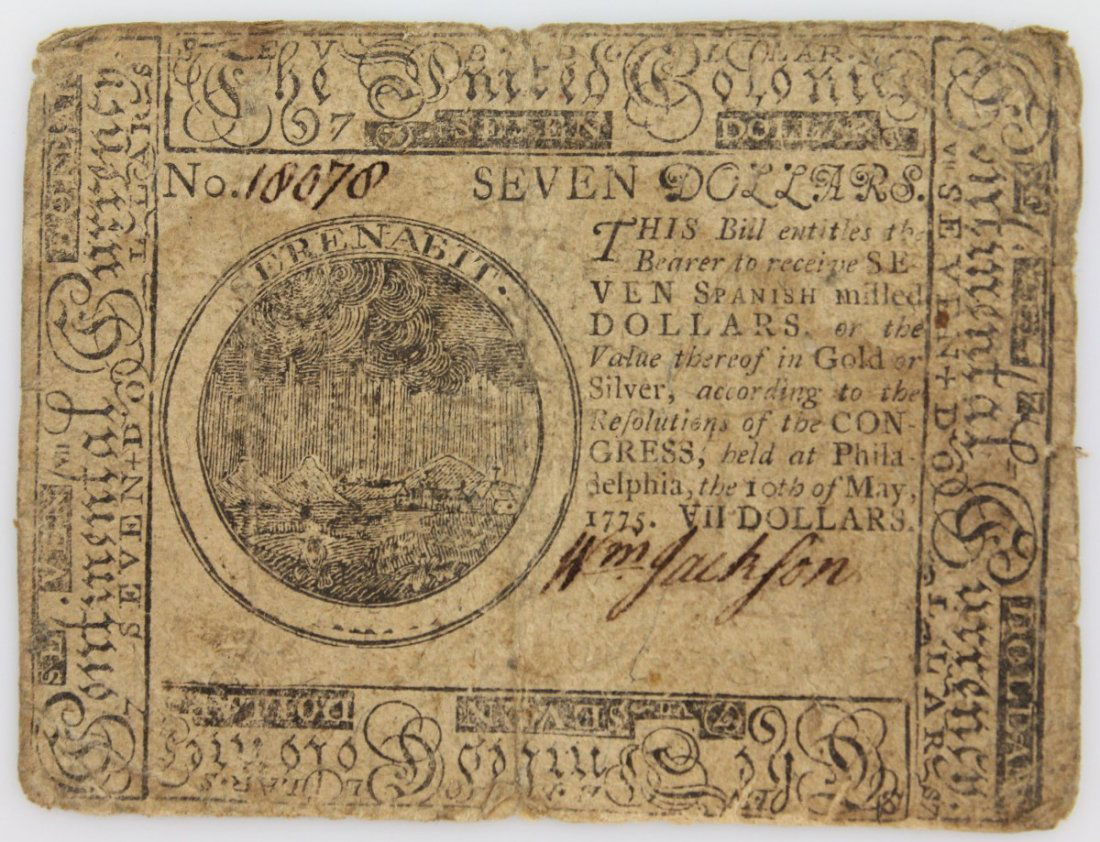 The United Colonies
SEVEN DOLLARS
No. 18078 SEVEN DOLLARS.
SERENABIT.
THIS Bill entitles the
Bearer to receive SE-
VEN SPANISH milled
DOLLARS, or the
Value thereof in Gold or
Silver, according to the
Resolutions of the CON-
GRESS, held at Phila-
delphia, the 10th of May,
1775. VII DOLLARS.
Wm. Jackson
Continental Currency
SEVEN DOLLARS
Continental Currency
SEVEN DOLLARS
The United Colonies
SEVEN DOLLARS